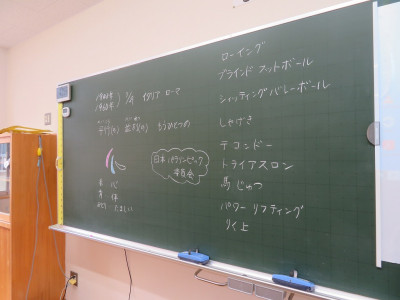 1960年
1960年 ) 9/19 イタリア ローマ
平行(の) 並列(の) もうひとつの
日本パラリンピック
委員会
赤 心
青 体
みどり たましい
ローイング
ブラインド フットボール
シッティングバレーボール
しゃげき
テコンドー
トライアスロン
馬じゅつ
パワー リフティング
りく上